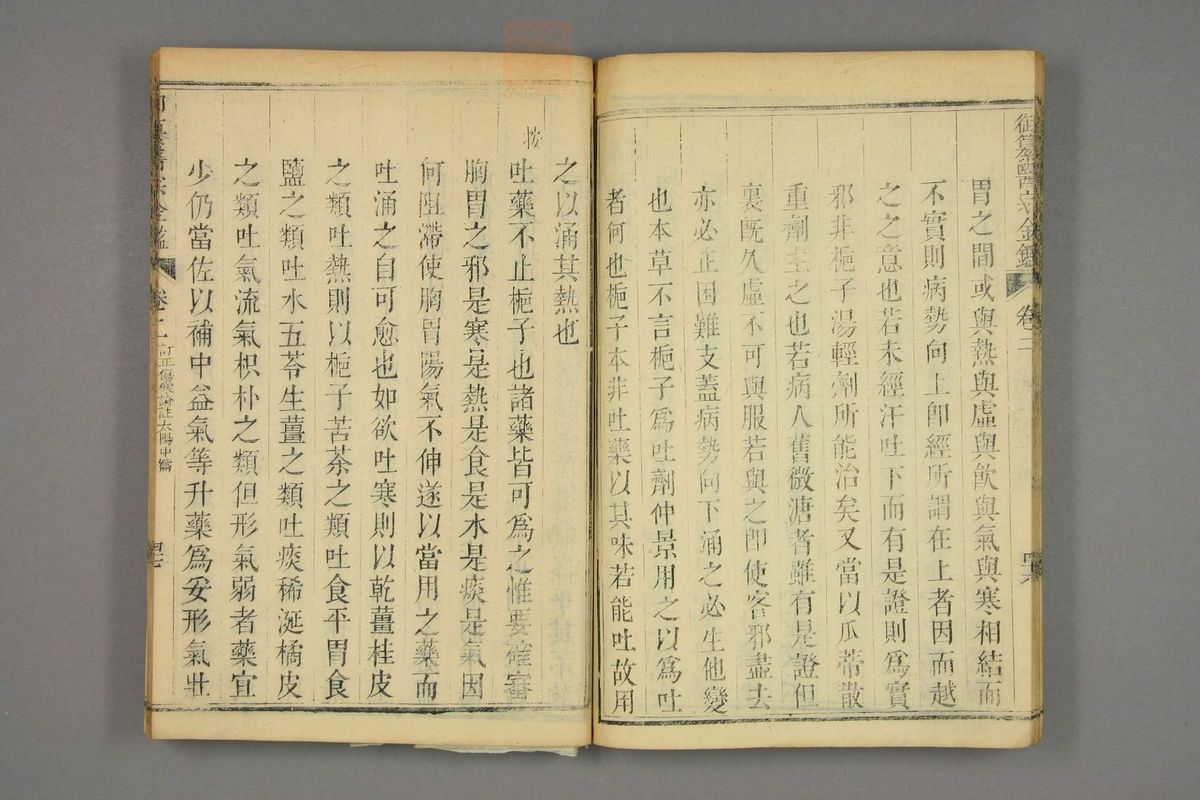 御纂醫宗金鑑 卷二 四六
胃之間或與熱與虛與飲與氣與寒相結而
不實則病勢向上卽經所謂在上者因而越
之之意也若未經汗吐下而有是證則爲實
邪非梔子湯輕劑所能治矣又當以瓜蒂散
重劑主之也若病人舊微溏者雖有是證但
裏旣久虛不可與服若與之卽使客邪盡去
亦必正困難支蓋病勢向下涌之必生他變
也本草不言梔子爲吐劑仲景用之以爲吐
者何也梔子本非吐藥以其味苦能吐故用
之以涌其熱也
按
吐藥不止梔子也諸藥皆可爲之惟要確審
胸胃之邪是寒是熱是食是水是痰是氣因
何阻滯使胸胃陽氣不伸遂以當用之藥而
吐涌之自可愈也如欲吐寒則以乾薑桂皮
之類吐熱則以梔子苦茶之類吐食平胃食
鹽之類吐水五苓生薑之類吐痰稀涎橘皮
之類吐氣流氣枳朴之類但形氣弱者藥宜
少仍當佐以補中益氣等升藥爲妥形氣壯
醫宗金鑑 卷二 訂正傷寒論註太陽中篇